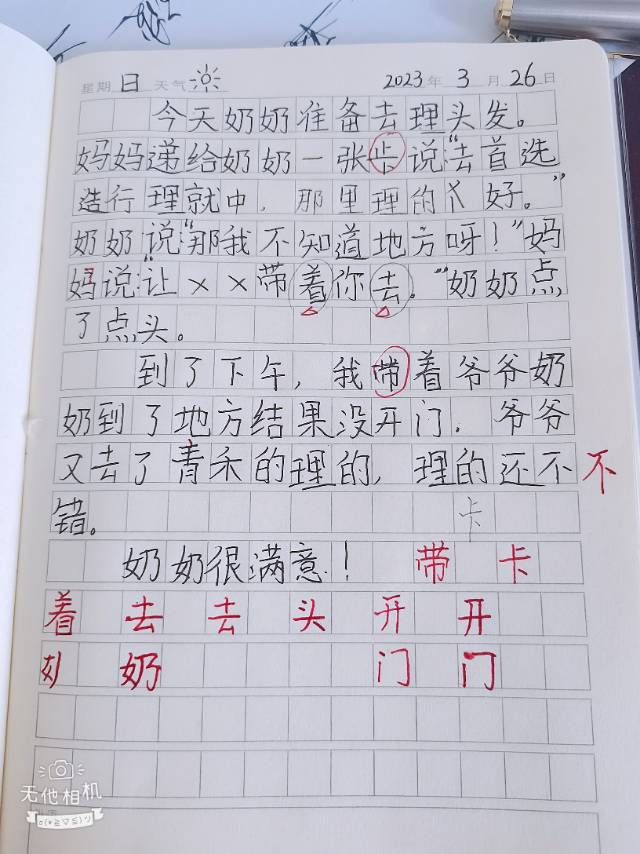 星期日 天气 2023年3月26日
今天奶奶准备去理头发。
妈妈递给奶奶一张卡说“去首选
造行理就中，那里理的好。”
奶奶说“那我不知道地方呀！”妈
妈说“让××带着你去。”奶奶点
了点头。
到了下午，我带着爷爷奶
奶到了地方结果没开门．爷爷
又去了青禾的理的，理的还不不
错。
卡
奶奶很满意！ 带 卡
着 去 去 头 开 开
奶 门 门
无他相机